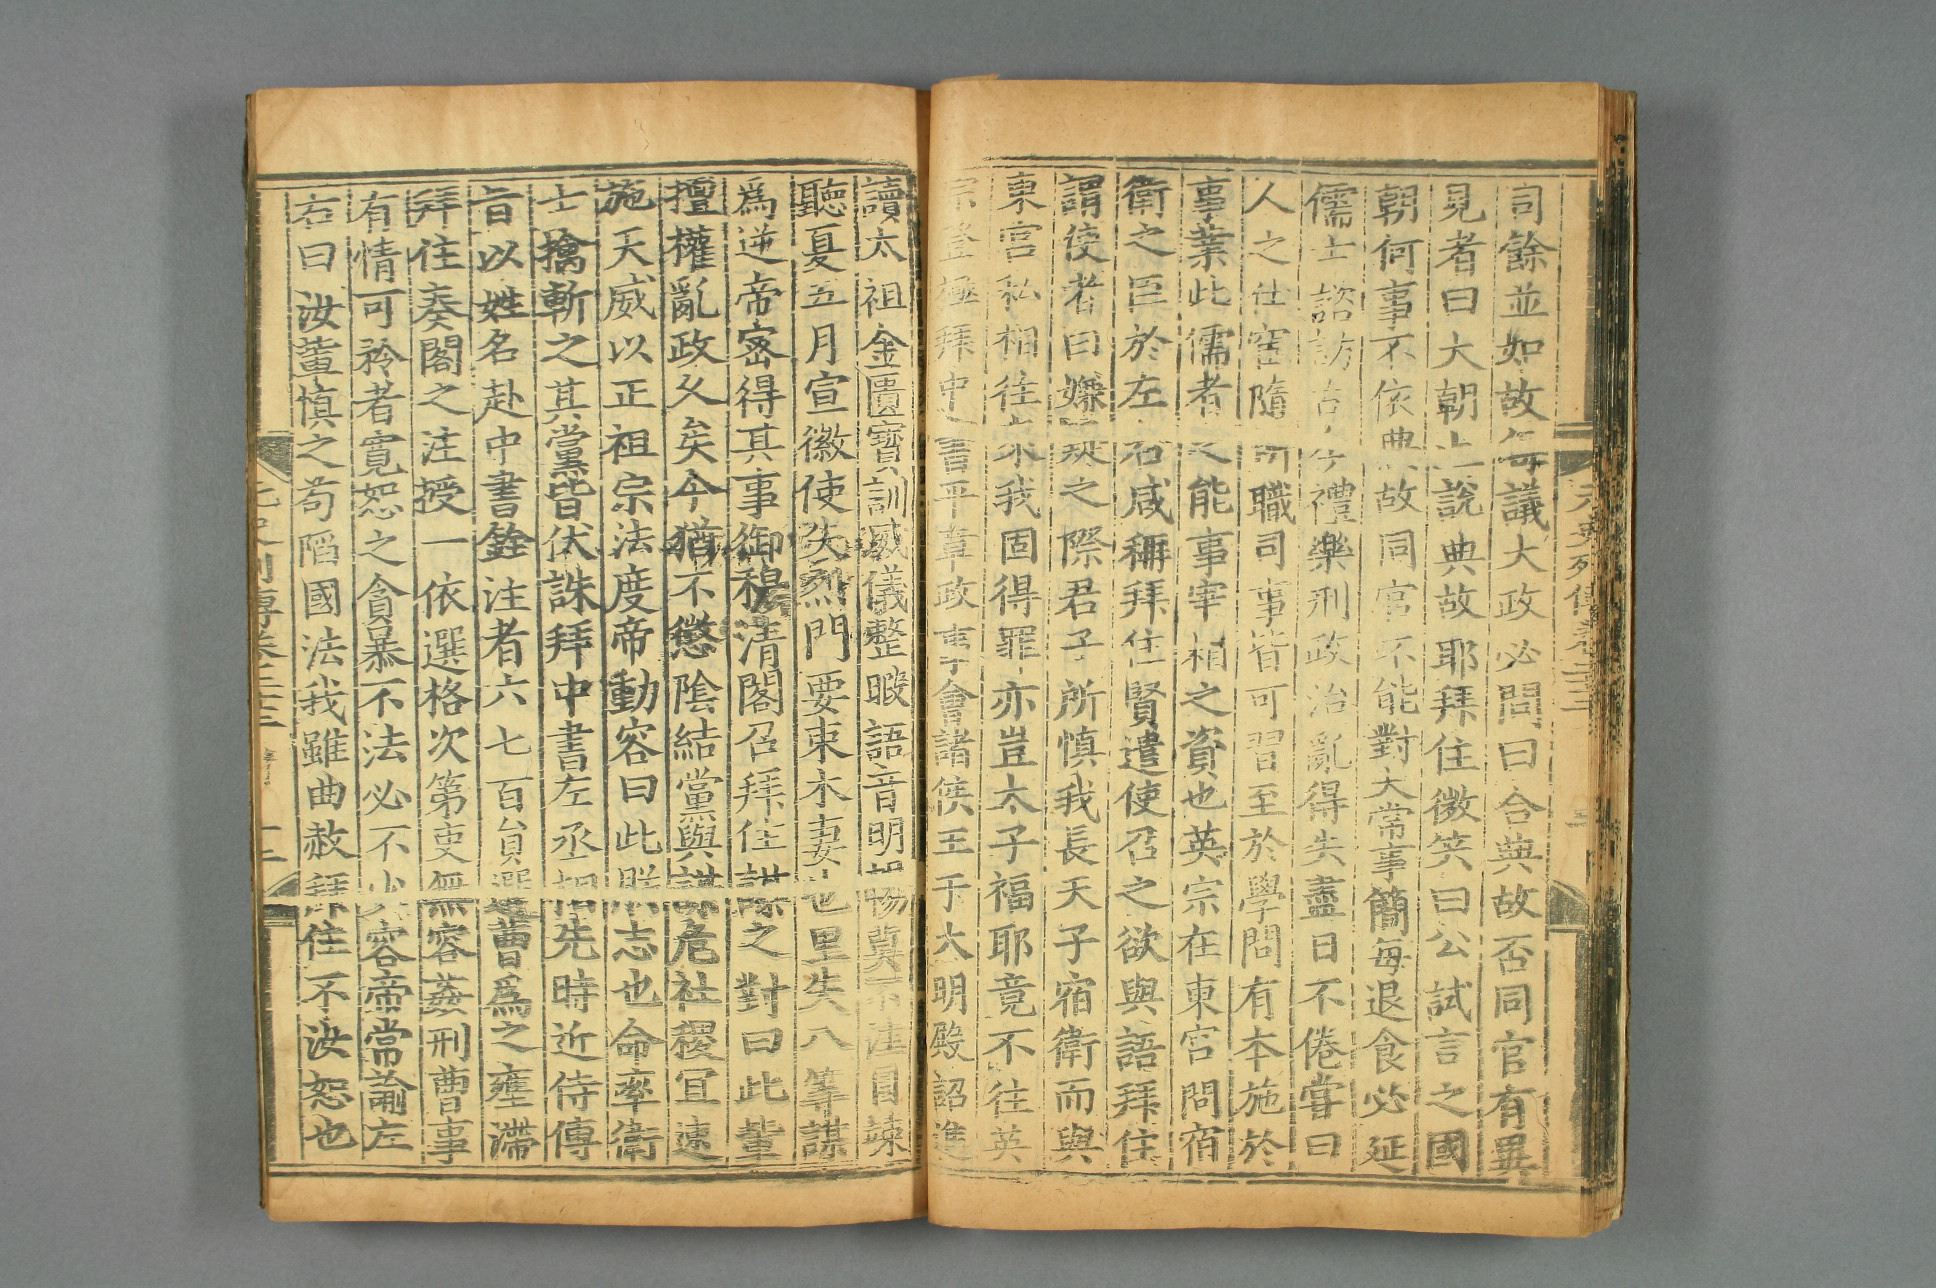 司餘並如故每議大政必問曰合典故否同官有異
見者曰大朝止說典故耶拜住微笑曰公試言之國
朝何事不依典故同官不能對太常事簡每退食必延
儒士諮訪古今禮樂刑政治亂得失盡日不倦嘗曰
人之仕宦隨所職司事皆可習至於學問有本施於
事業此儒者之能事宰相之資也英宗在東宮問宿
衛之臣於左右咸稱拜住賢遣使召之欲與語拜住
謂使者曰嫌疑之際君子所慎我長天子宿衛而與
東宮私相往來我固得罪亦豈太子福耶竟不往英
宗登極拜中書平章政事會諸侯王于大明殿詔進
讀太祖金匱寶訓威儀整暇語音明暢莫不注目竦
聽夏五月宣徽使失烈門要束木妻也里失八等謀
為逆帝密得其事御穆清閣召拜住謀之對曰此輩
擅權亂政久矣今猶不懲陰結黨與謀危社稷宜速
施天威以正祖宗法度帝動容曰此朕志也命率衛
士擒斬之其黨皆伏誅拜中書左丞相先時近侍傳
旨以姓名赴中書銓注者六七百員選曹為之壅滯
拜住奏閣之注授一依選格次第吏無容姦刑曹事
有情可矜者寬恕之貪暴不法必不少容帝常諭左
右曰汝輩慎之苟陷國法我雖曲赦拜住不汝恕也
元史列傳卷二十三